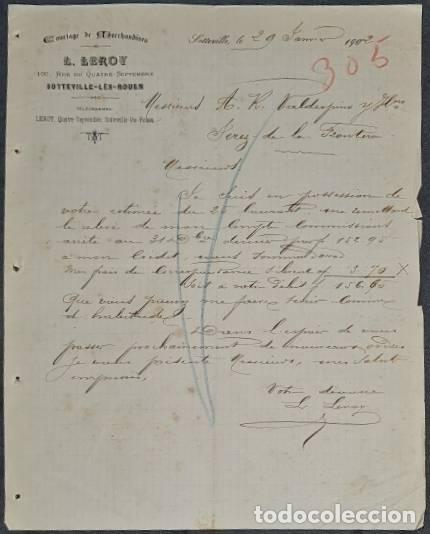 Courtage de Marchandises
L. LEROY
100, Rue du Quatre-Septembre
SOTTEVILLE-LÈS-ROUEN
TÉLÉGRAMMES
LEROY, Quatre-Septembre, Sotteville-lès-Rouen
Sotteville, le 29 Janvier 1902
305
Messieurs A. R. Valdespino y Hno
Jerez de la Frontera
Messieurs,
Je suis en possession de
votre estimée du 25 courant, me remettant
le relevé de mon Compte Commissions
arrêté au 31 Dbre dernier pour f 152.95
à mon Crédit, nous sommes d'accord
Mes frais de Correspondance s'élèvent à f 3.70 X
Soit à votre Débit f 156.65
Que vous pouvez me faire tenir comme
d'habitude.
Dans l'espoir de vous
passer prochainement de nouveaux ordres
je vous présente Messieurs, mes Saluts
empressés,
Votre dévoué
L. Leroy
todocoleccion.net